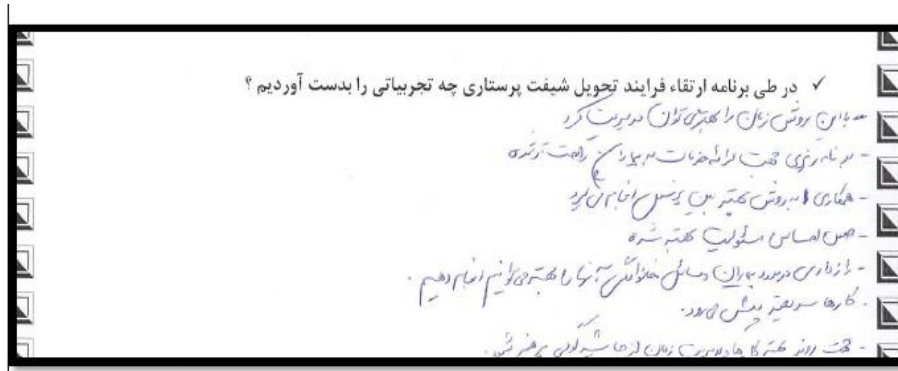 ✓ در طی برنامه ارتقاء فرایند تحویل شیفت پرستاری چه تجربیاتی را بدست آوردیم ؟
- با این روش زمان را بهتر می توان مدیریت کرد
- برنامه ریزی جهت ارائه خدمات به بیماران راحت تر شده
- همکاری به روش بهتر بین پرسنل انجام می گیرد
- حس احساس مسئولیت بهتر شده
- رازداری در مورد بیماران و مسائل خانوادگی آنها را بهتر می توانیم انجام دهیم .
- کارها سریعتر پیش می رود.
- جهت روند بهتر کارها و مدیریت زمان از حاشیه گویی پرهیز